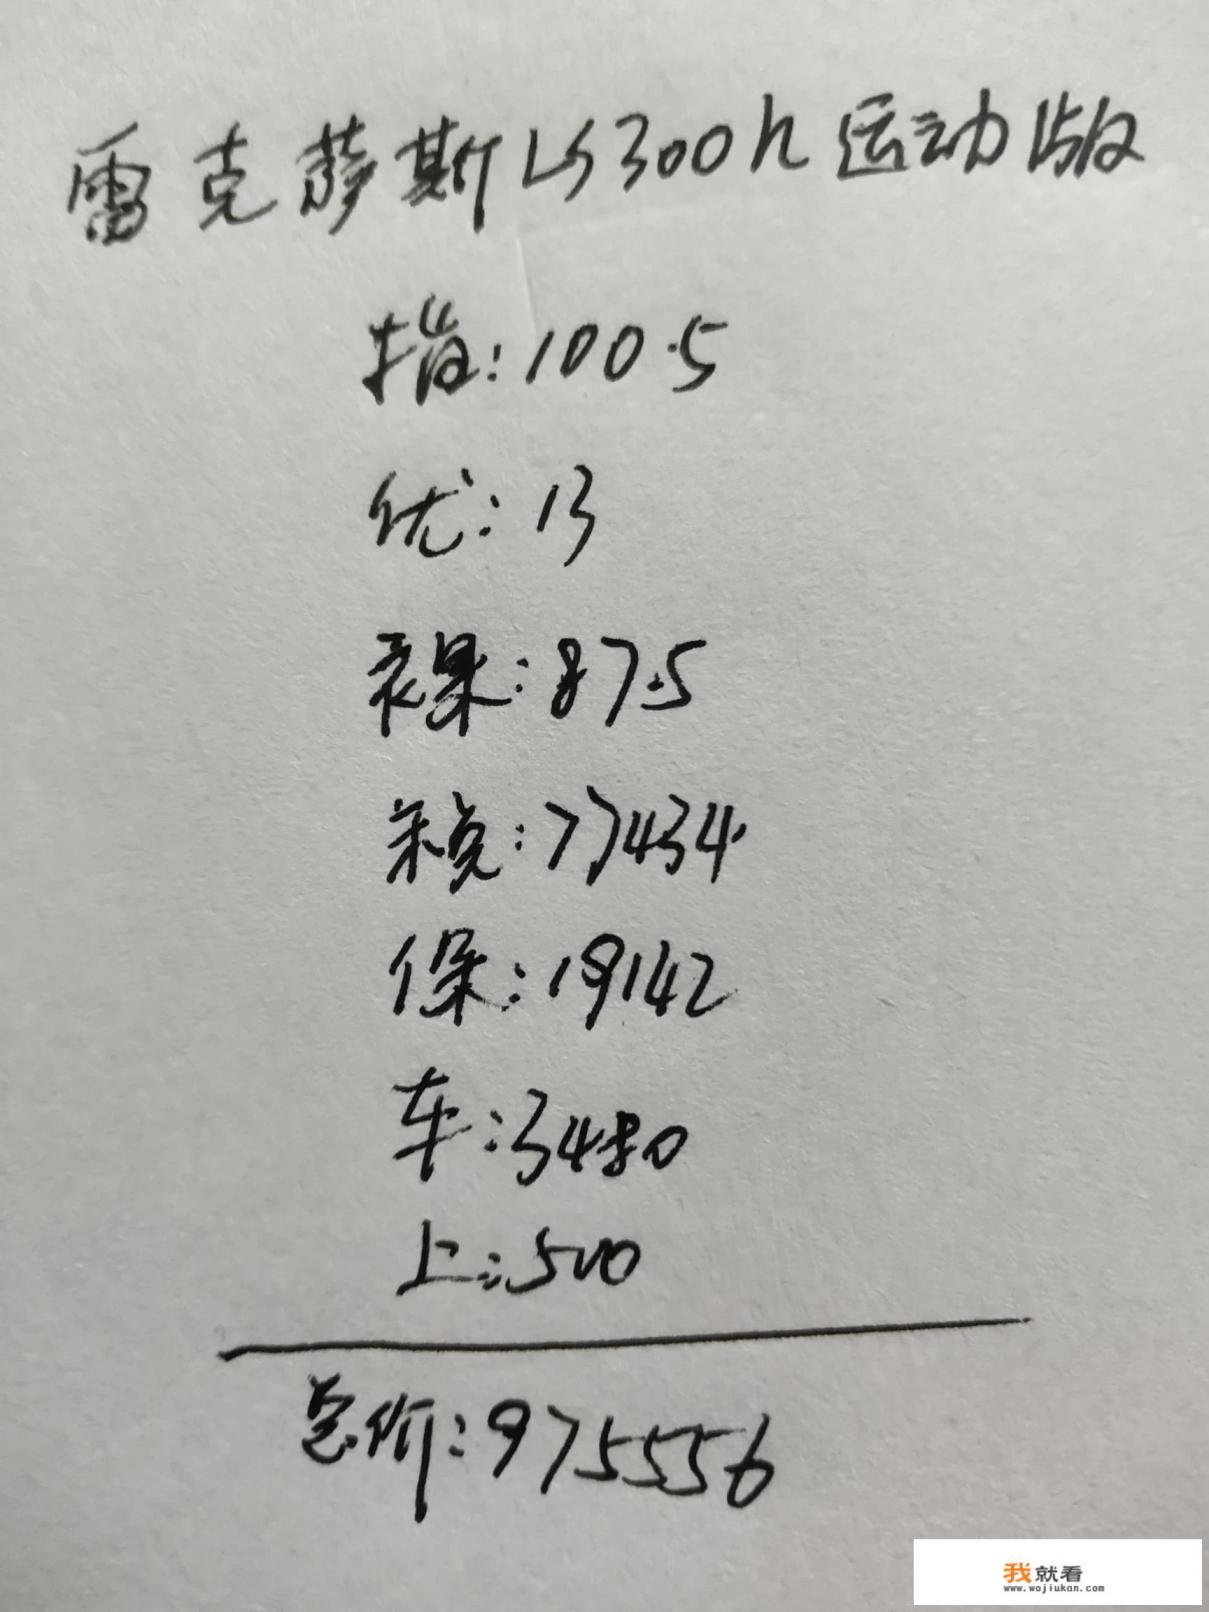 雷克萨斯LS300h运动版
指:100.5
优:13
裸:87.5
税:77434
保:19142
车:3480
上:500
总价:975556
我就看
www.wojiukan.com